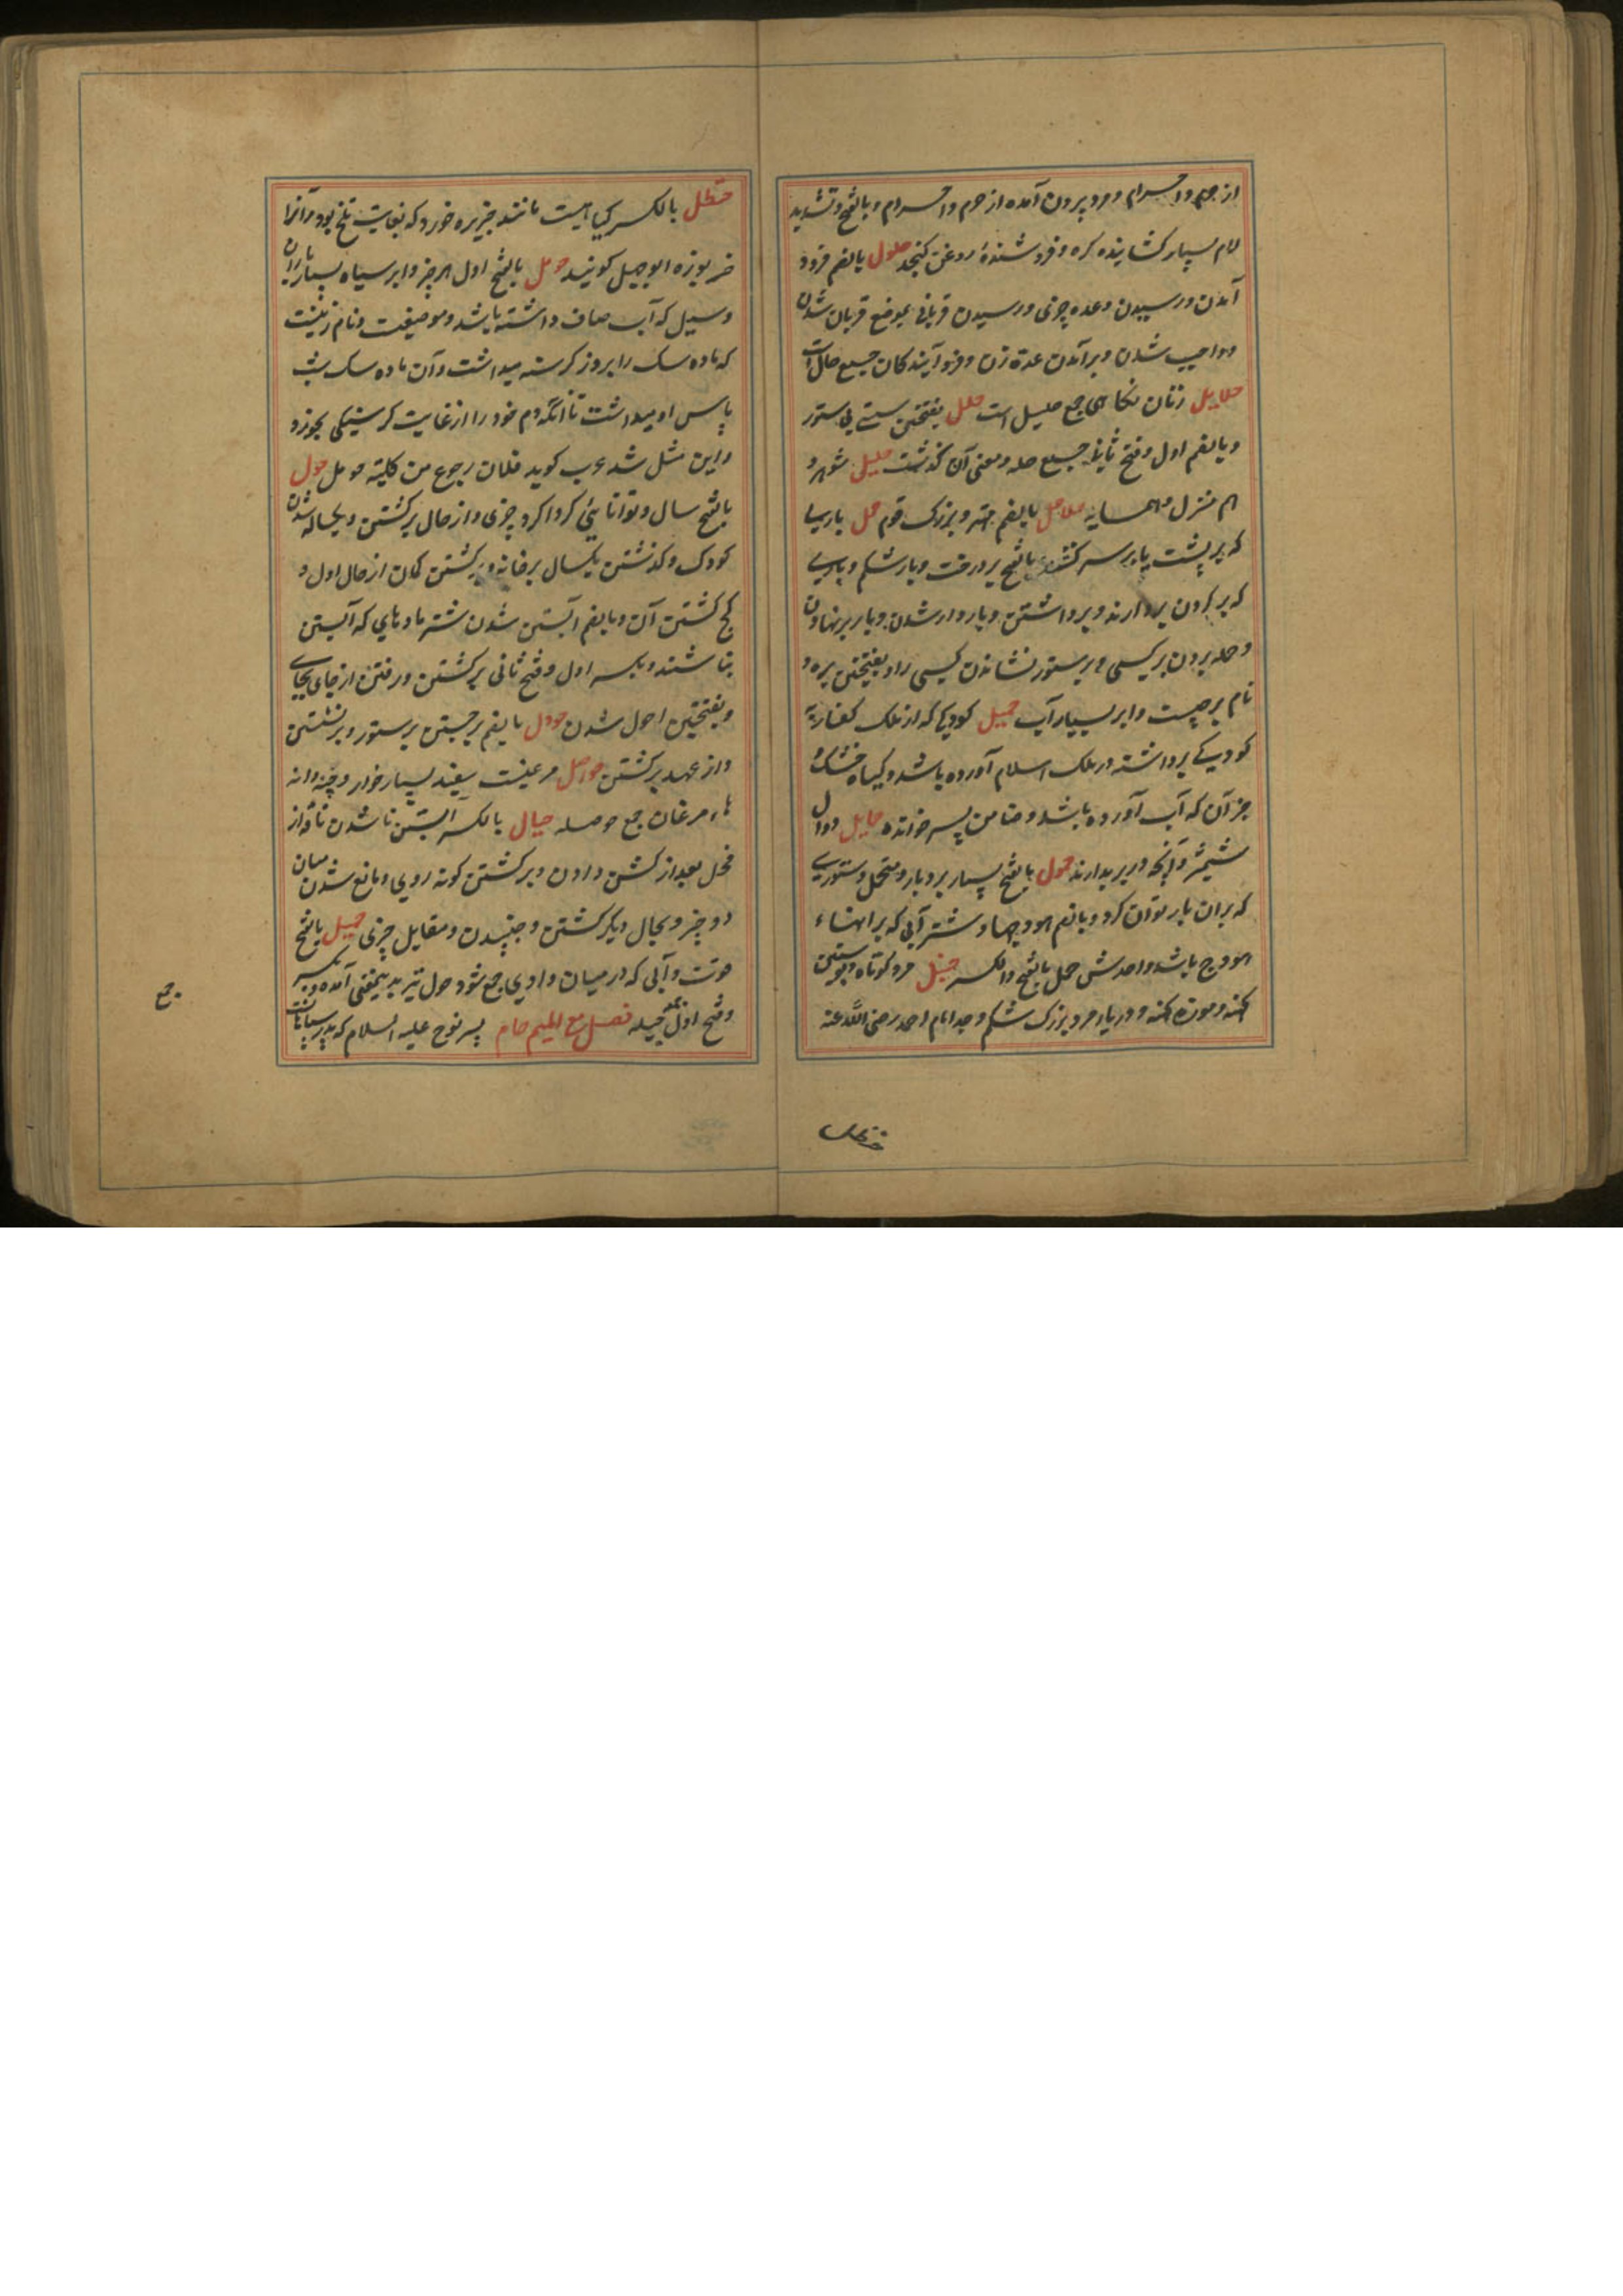 از حرم و احرام و مرد بیرون آمده از حرم و احرام و بالفتح و تشدید
لام بسیار کشاینده کره و فروشندهٔ روغن کنجد حلول بالضم فرود
آمدن و رسیدن وعده چیزی و رسیدن قربانی بموضع قربان شدن
و واجب شدن و برآمدن عدة زن و فرو آیندکان جمع حال است
حلایل زنان نکاحی جمع حلیل است حلل بفتحتین سستی پی ستور
و بالضم اول و فتح ثانی جمع حله و معنی آن کذشت حلیل شوهر و
هم منزل و همسایه حلاحل بالضم مهتر و بزرک قوم حمل باریی
که بر پشت یا بر سر کنند بالفتح بر درخت و بار شکم و باریی
که بر کردن بردارند و برداشتن و باردار شدن و بار بر نهادن
و حمله بردن بر کسی و بر ستور نشاندن کسی را و بفتحتین بره و
نام برجیست و ابر بسیار آب حمیل کودکی که از ملک کفار
کودکی برداشته در ملک اسلام آورده باشد و کیاه خشک
جز آن که آب آورده باشد و ضامن پسر خوانده حمایل دوال
شمشیر و آنچه در بر بدارند حمول بالفتح بسیار بردبار و متحمل و ستوریی
که بران بار توان کرد و بالضم هودجها و شتر آنی که بر آنها
هودج باشد واحدش حمل بالفتح والکسر حنبل مرد کوتاه و پوستین
کهنه و موزه کهنه و دریا و مرد بزرک شکم و جد امام احمد رضی الله عنه
حنظل
حنظل بالکسر کیاهیست مانند خربزه خورد که بغایت تلخ بود و آنرا
خربوزه ابوجهل کویند حومل بالفتح اول هر چیز و ابر سیاه بسیار باران
و سیل که آب صاف داشته باشد و موضعیست و نام زنیست
که ماده سک را بروز کرسنه میداشت و آن ماده سک بشب
پاس او میداشت تا آنکه دم خود را از غایت کرسنکی بخورد
و این مثل شد عرب کوید فلان اجوع من کلبة حومل حول
بالفتح سال و توانائی کردا کرد چیزی و از حال برکشتن و یکساله شدن
کودک و کذشتن یکسال بر خانه و برکشتن کمان از حال اول و
کج کشتن آن و بالضم آبستن شدن شتر ماده‌ای که آبستن
نباشند و بکسر اول و فتح ثانی برکشتن و رفتن از جای بجای
و بفتحتین احول شدن حوول بالضم برجستن بر ستور و برنشستن
و از عهد برکشتن حواصل مرغیست سفید بسیار خوار و چینه‌دانه
هاء مرغان جمع حوصله حیال بالکسر آبستن ناشدن ناقه از
فحل بعد از کشن دادن و برکشتن کونه روی و مانع شدن میان
دو چیز و بحال دیکر کشتن و جنبیدن و مقابل چیزی حیل بالفتح
قوت و آبی که در میان وادی جمع شود حول نیز بدینمعنی آمده و بکسر
و فتح اول جمع حیله فصل مع المیم حام پسر نوح علیه السلام که پدر سیاهانست
جمع